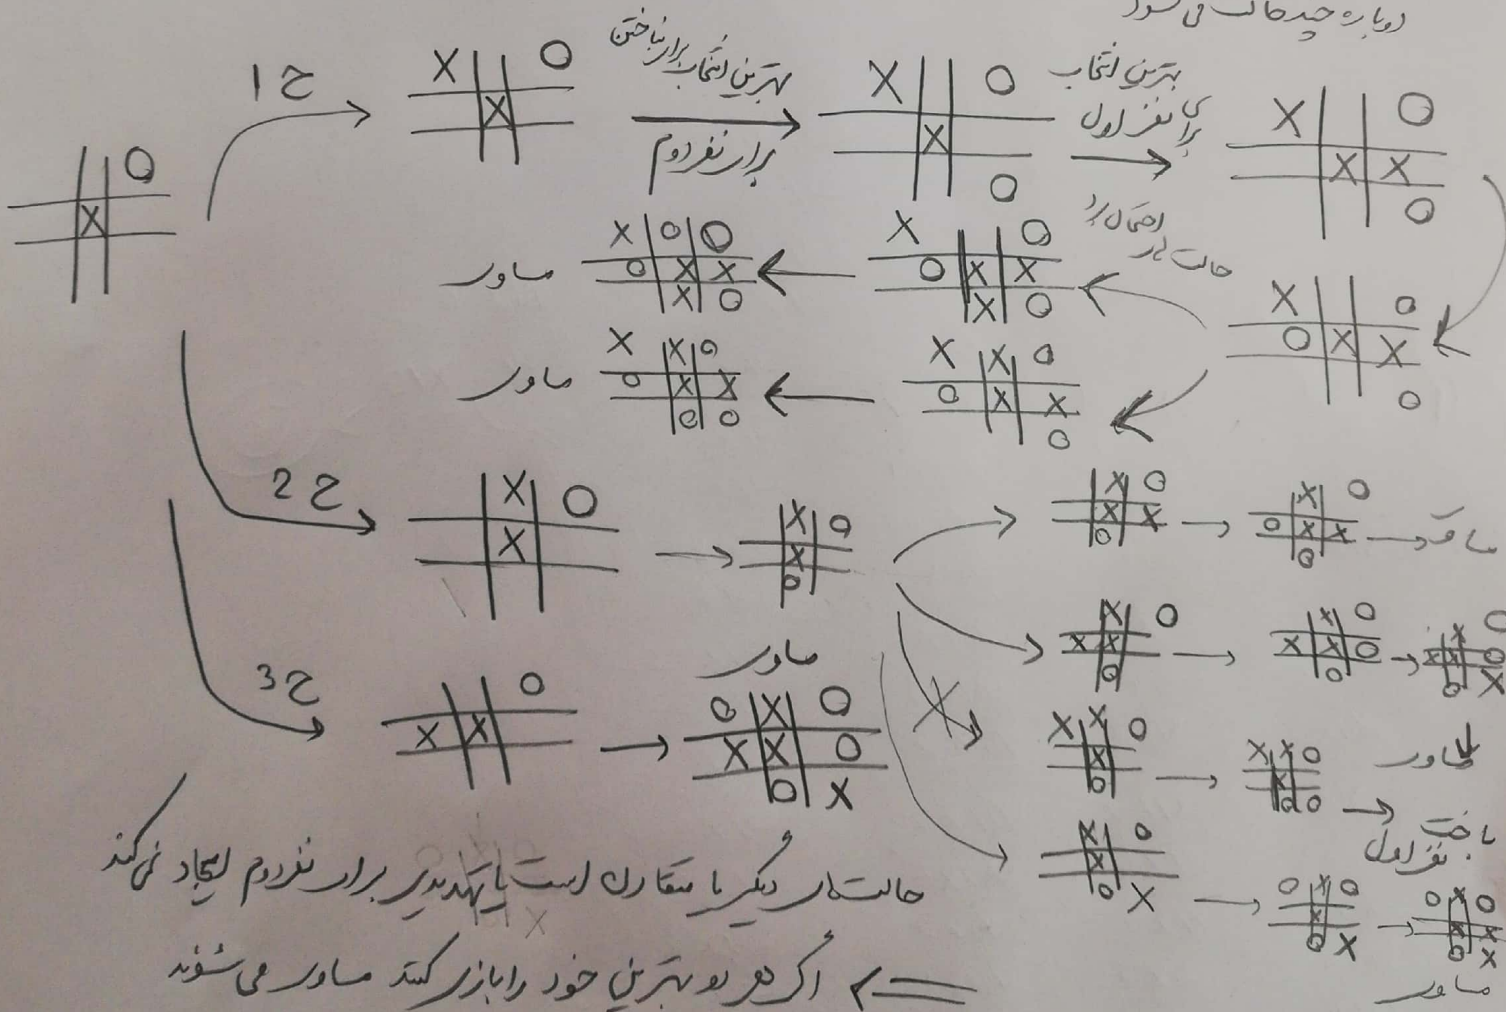 دوباره چند حالت می شود
ح 1
بهترین انتخاب برای نباختن
برای نفر دوم
بهترین انتخاب
برای نفر اول
حالت دار
مساوی
مساوی
ح 2
مساوی
ح 3
مساوی
مساوی
باخت
نفر اول
مساوی
حالت های دیگر یا متقارن است یا تهدیدی برای نفر دوم ایجاد نمی کند
اگر هر دو بهترین خود را بازی کنند مساوی می شوند